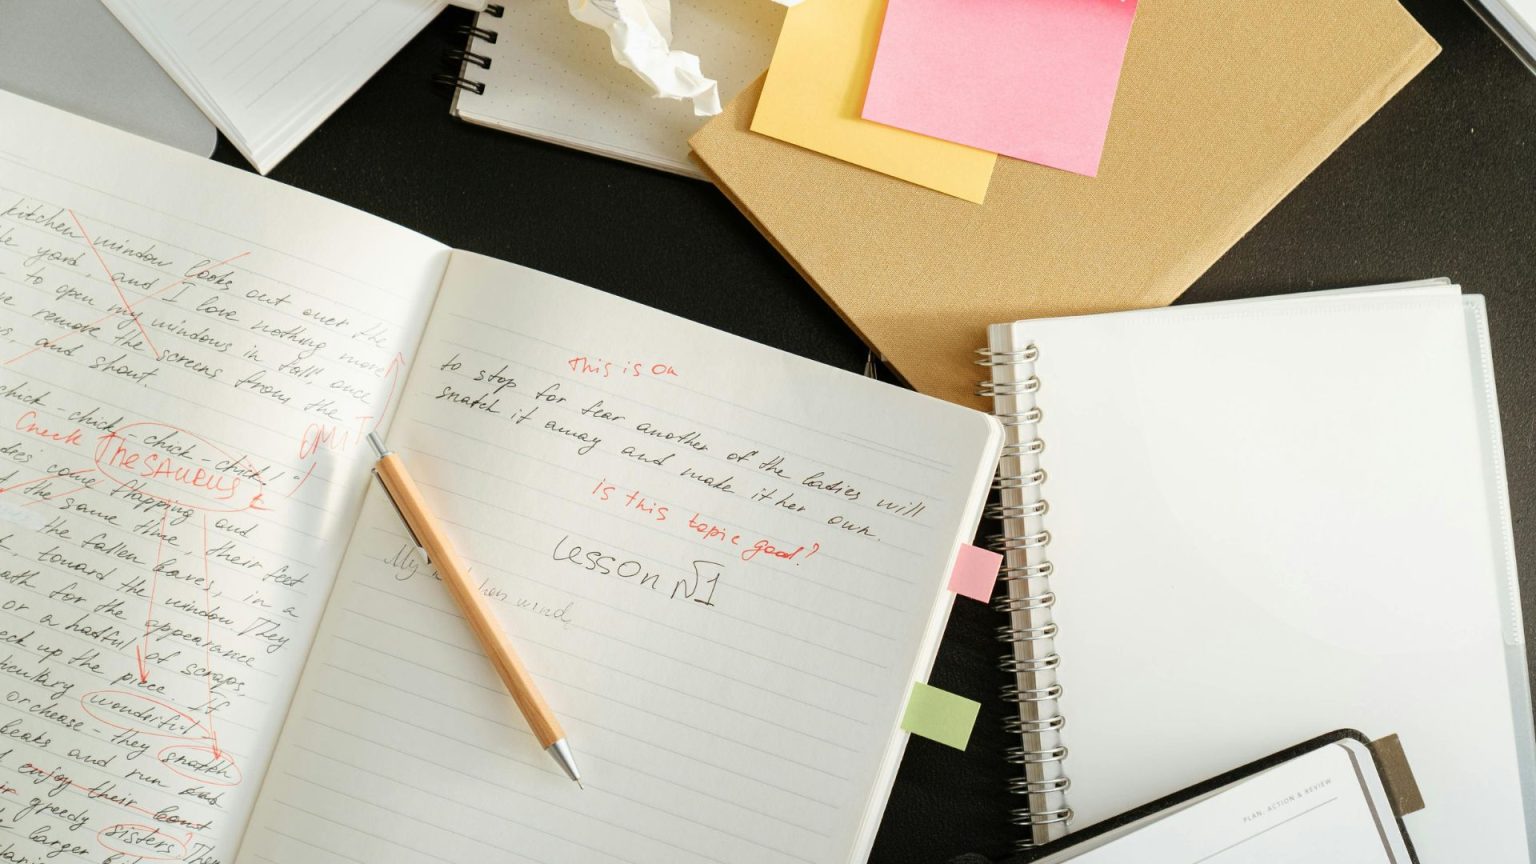 kitchen window looks out over the
yard, and I love nothing more
to open my windows in fall, once
remove the screens from the
and shout.
chick-chick-chick-chick!
OMIT
Check THESAURUS
come flapping and
the same time, their feet
the fallen leaves, in a
toward the window. They
for the appearance
or a hatful of scraps,
up the piece. If
wonderful
they snatch
and run
enjoy their
greedy sisters? They
larger
This is OK
to stop for fear another of the ladies will
snatch it away and make it her own.
is this topic good?
Lesson №1
My
wind
PLAN, ACTION & REVIEW